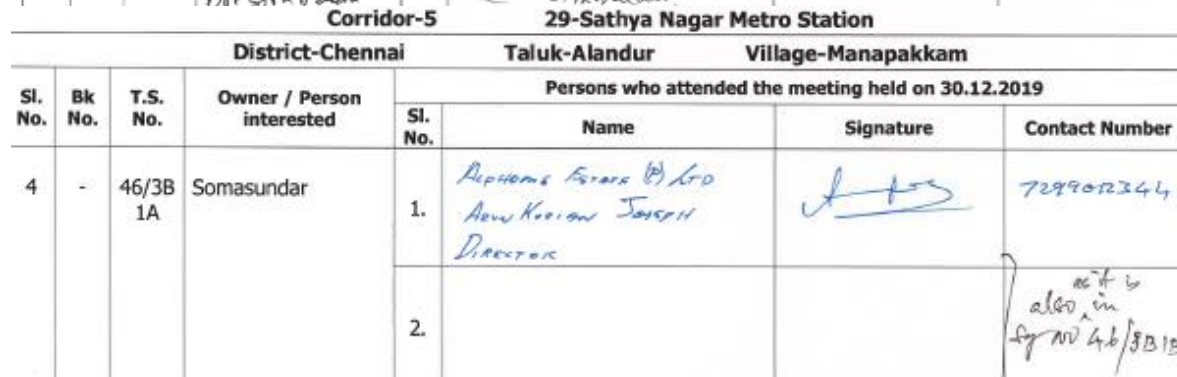 Corridor-5 29-Sathya Nagar Metro Station
District-Chennai Taluk-Alandur Village-Manapakkam
Sl. No. Bk No. T.S. No. Owner / Person interested Persons who attended the meeting held on 30.12.2019
Sl. No. Name Signature Contact Number
4 - 46/3B 1A Somasundar
1. Estate (P) LTD
Joseph
Director
as it is
2. also in
46/3B1B